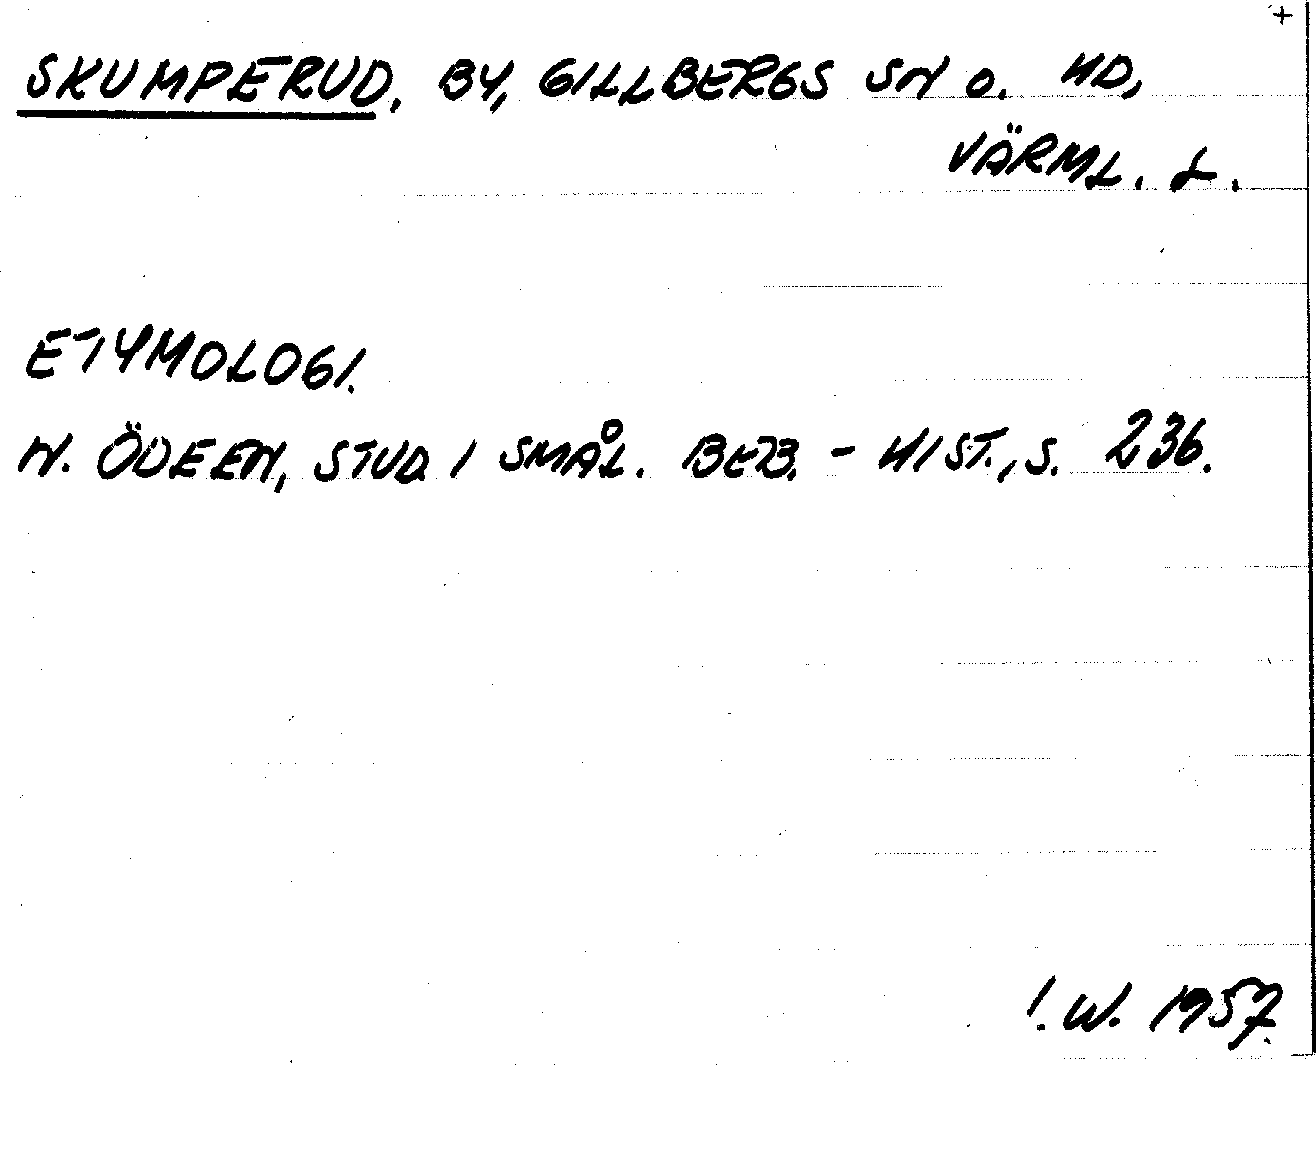 +
SKUMPERUD, BY, GILLBERGS SN O. HD,
VÄRML. L.
ETYMOLOGI.
N. ÖDEEN, STUD I SMÅL. BEB. - HIST., S. 236.
I.W. 1957.